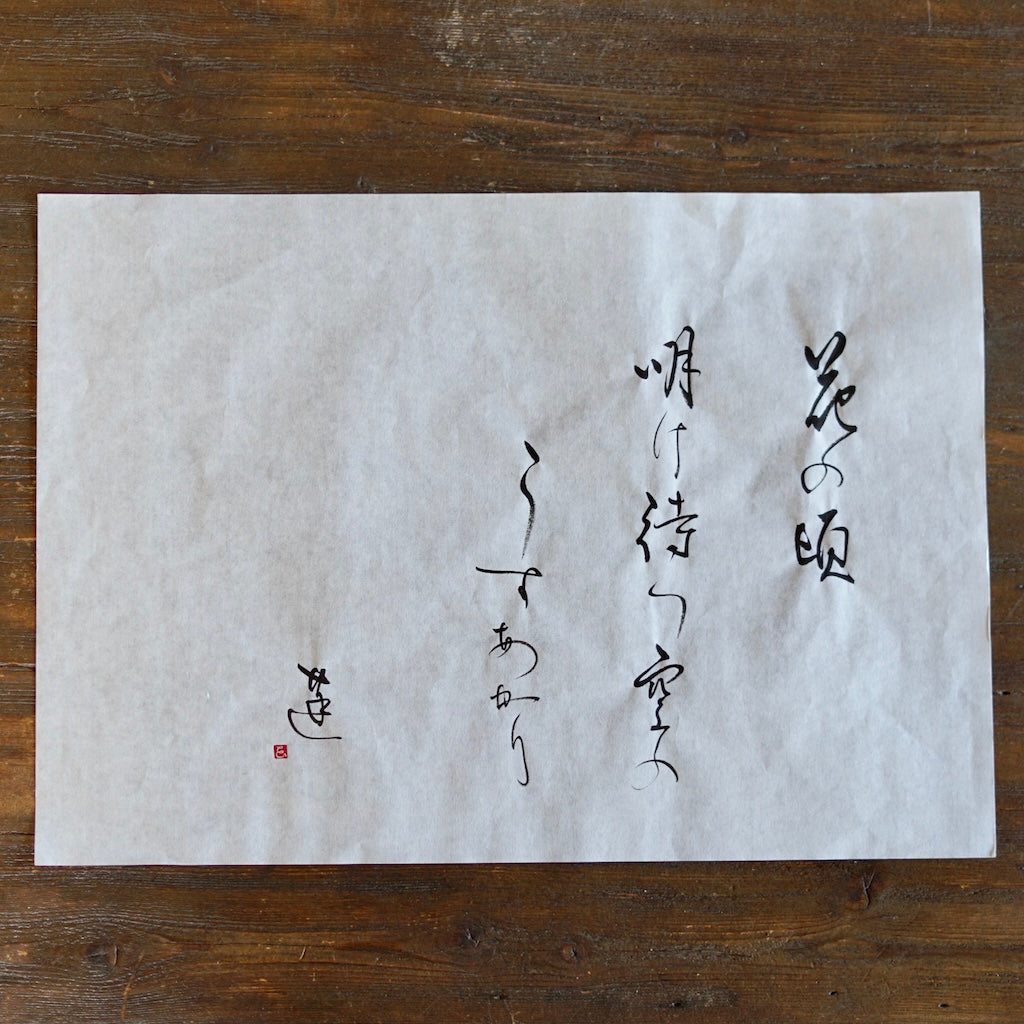 花の頃
明け待つ空の
うすあかり
蓮